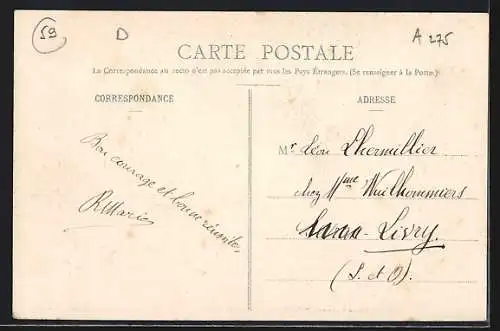 59
D
A 275
CARTE POSTALE
La Correspondance au recto n'est pas acceptée par tous les Pays Étrangers. (Se renseigner à la Poste)
CORRESPONDANCE
ADRESSE
Bon courage et bonne réussite,
R Marie
Mr Léon Lhermillier
chez Mme Wuilhommiers
Livry.
(S. et O.)